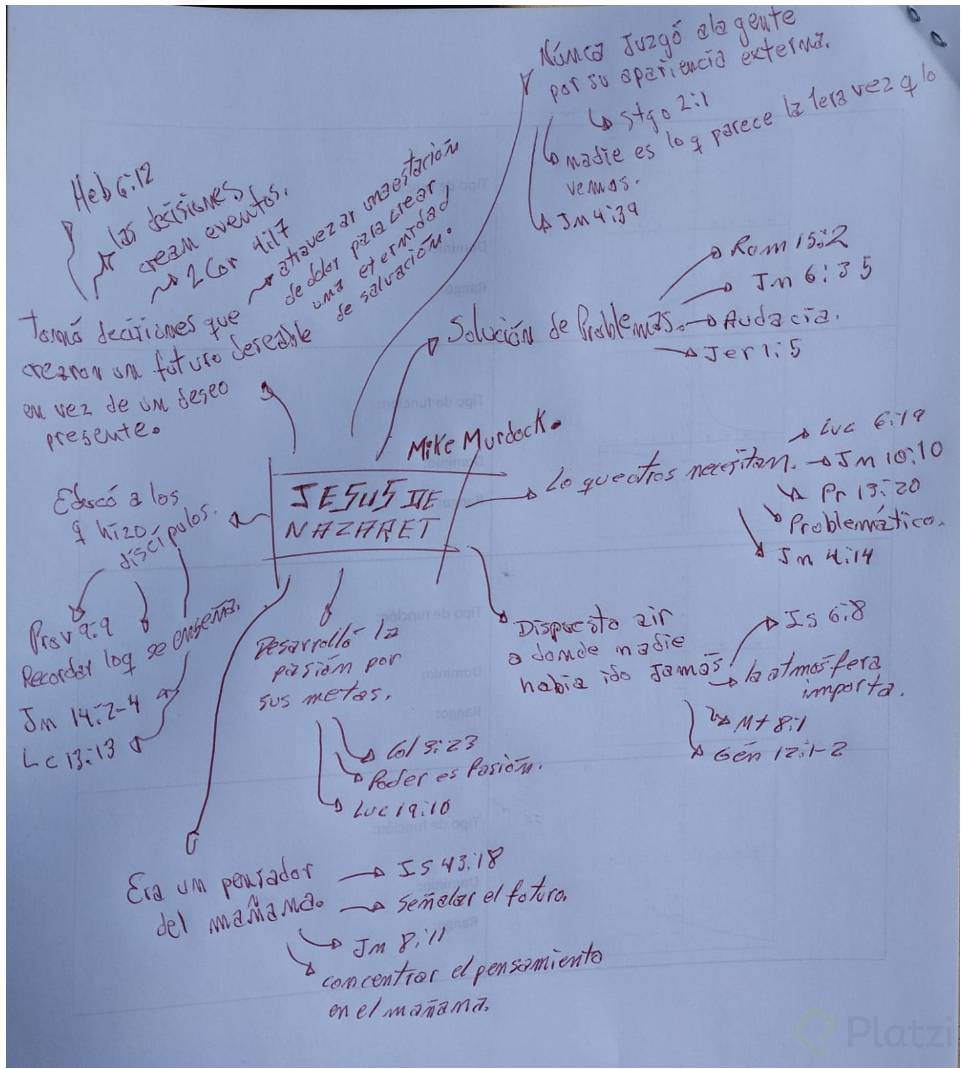 Núnca Juzgó a la gente
por su apariencia externa.
Stgo 2:1
nadie es lo q parece la 1era vez q lo
vemos.
Jn 4:39
Heb 6:12
las decisiones
crean eventos.
2 Cor 4:17
atravezar una estación
de dolor para crear
una eternidad
de salvación.
Tomó decisiones que
crearon un futuro deseable
en vez de un deseo
presente.
Solución de Problemas.
Rom 15:2
Jn 6:35
Audacia.
Jer 1:5
Mike Murdock.
JESUS DE
NAZARET
Lo que otros necesitan.
Luc 6:19
Jn 10:10
Pr 13:20
Problemático.
Jn 4:14
Educó a los
q hizo
discípulos.
Prov 9:9
Recordar loq se enseña.
Jn 14:2-4
Lc 13:13
Desarrolló la
pasión por
sus metas.
Col 3:23
Poder es Pasión.
Luc 19:10
Dispuesto a ir
a donde nadie
había ido Jamás
Is 6:8
la atmósfera
importa.
Mt 8:1
Gén 12:1-2
Era un pensador
del mañana.
Is 43:18
señalar el futuro.
Jn 8:11
concentrar el pensamiento
en el mañana.
Platzi